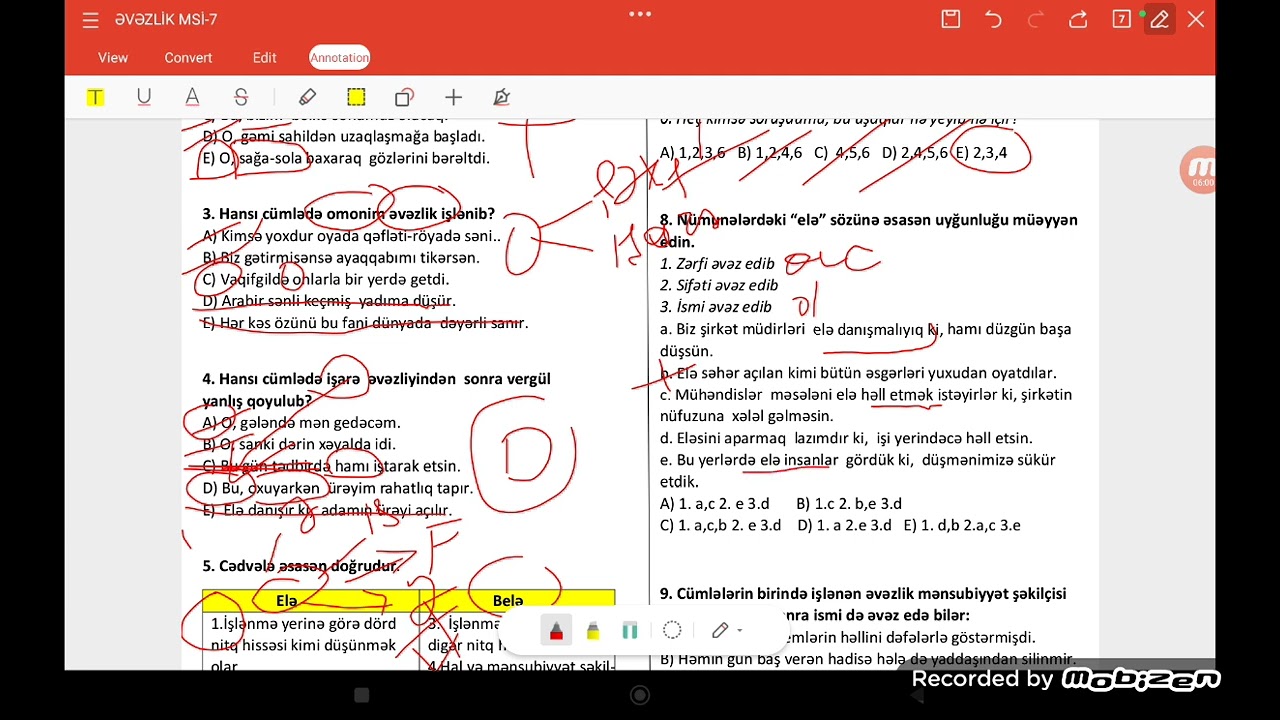 ƏVƏZLİK MSİ-7
7
View Convert Edit Annotation
D) O, gəmi sahildən uzaqlaşmağa başladı.
E) O, sağa-sola baxaraq gözlərini bərəltdi.
3. Hansı cümlədə omonim əvəzlik işlənib?
A) Kimsə yoxdur oyada qəfləti-röyadə səni..
B) Biz gətirmisənsə ayaqqabımı tikərsən.
C) Vaqifgildə onlarla bir yerdə getdi.
D) Arabir sənli keçmiş yadıma düşür.
E) Hər kəs özünü bu fani dünyada dəyərli sanır.
4. Hansı cümlədə işarə əvəzliyindən sonra vergül
yanlış qoyulub?
A) O, gələndə mən gedəcəm.
B) O, sanki dərin xəyalda idi.
C) Bu gün tədbirdə hamı iştarak etsin.
D) Bu, oxuyarkən ürəyim rahatlıq tapır.
E) Elə danışır ki, adamın ürəyi açılır.
5. Cədvələ əsasən doğrudur.
Elə Belə
1.İşlənmə yerinə görə dörd
nitq hissəsi kimi düşünmək
olar
3. İşlənmə
digər nitq
4.Hal və mənsubiyyət şəkil-
6. Heç kimsə soruşdumu, bu uşaqlar nə yeyib nə içir?
A) 1,2,3,6 B) 1,2,4,6 C) 4,5,6 D) 2,4,5,6 E) 2,3,4
8. Nümunələrdəki “elə” sözünə əsasən uyğunluğu müəyyən
edin.
1. Zərfi əvəz edib
2. Sifəti əvəz edib
3. İsmi əvəz edib
a. Biz şirkət müdirləri elə danışmalıyıq ki, hamı düzgün başa
düşsün.
b. Elə səhər açılan kimi bütün əsgərləri yuxudan oyatdılar.
c. Mühəndislər məsələni elə həll etmək istəyirlər ki, şirkətin
nüfuzuna xələl gəlməsin.
d. Eləsini aparmaq lazımdır ki, işi yerindəcə həll etsin.
e. Bu yerlərdə elə insanlar gördük ki, düşmənimizə sükür
etdik.
A) 1. a,c 2. e 3.d B) 1.c 2. b,e 3.d
C) 1. a,c,b 2. e 3.d D) 1. a 2.e 3.d E) 1. d,b 2.a,c 3.e
9. Cümlələrin birində işlənən əvəzlik mənsubiyyət şəkilçisi
nra ismi də əvəz edə bilər:
emlərin həllini dəfələrlə göstərmişdi.
B) Həmin gün baş verən hadisə hələ də yaddaşından silinmir.
D
06:00
Recorded by MOBIZEN